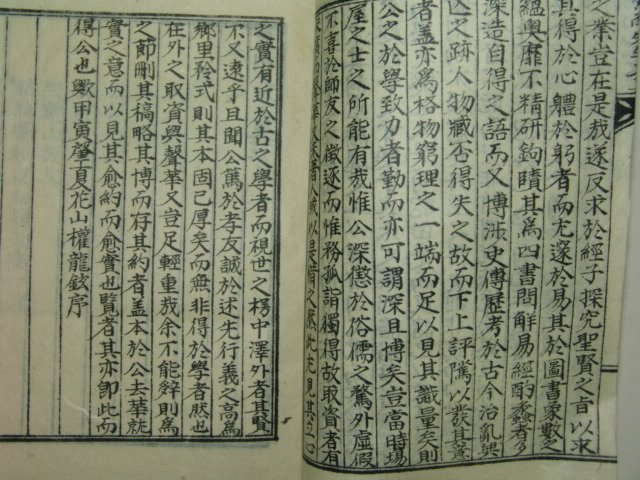 之業豈在是哉遂反求於經子探究聖賢之旨以求
其得於心體於躬者而尤邃於易其於圖書象數之
縕奧靡不精研鉤賾其爲四書問解易經酌蠡者多
深造自得之語而又博涉史傳歷考於古今治亂興
亡之跡人物臧否得失之故而下上評騭以發其意
者盖亦爲格物窮理之一端而足以見其識量矣則
公之於學致力者勤而亦可謂深且博矣豈當時場
屋之士之所能有哉惟公深懲於俗儒之騖外虛假
不喜於師友之徵逐而惟務孤詣獨得故取資者有
以是
此尤見其
心
之實有近於古之學者而視世之楞中澤外者其賢
不又遠乎且聞公篤於孝友誠於述先行義之高爲
鄕里矜式則其本固已厚矣而無非得於學者然也
在外之取資與聲華又豈足輕重哉余不能辭則爲
之節刪其稿略其博而存其約者盖本於公去華就
實之意而以見其愈約而愈實也覽者其亦卽此而
得公也歟甲寅肇夏花山權龍鉉序